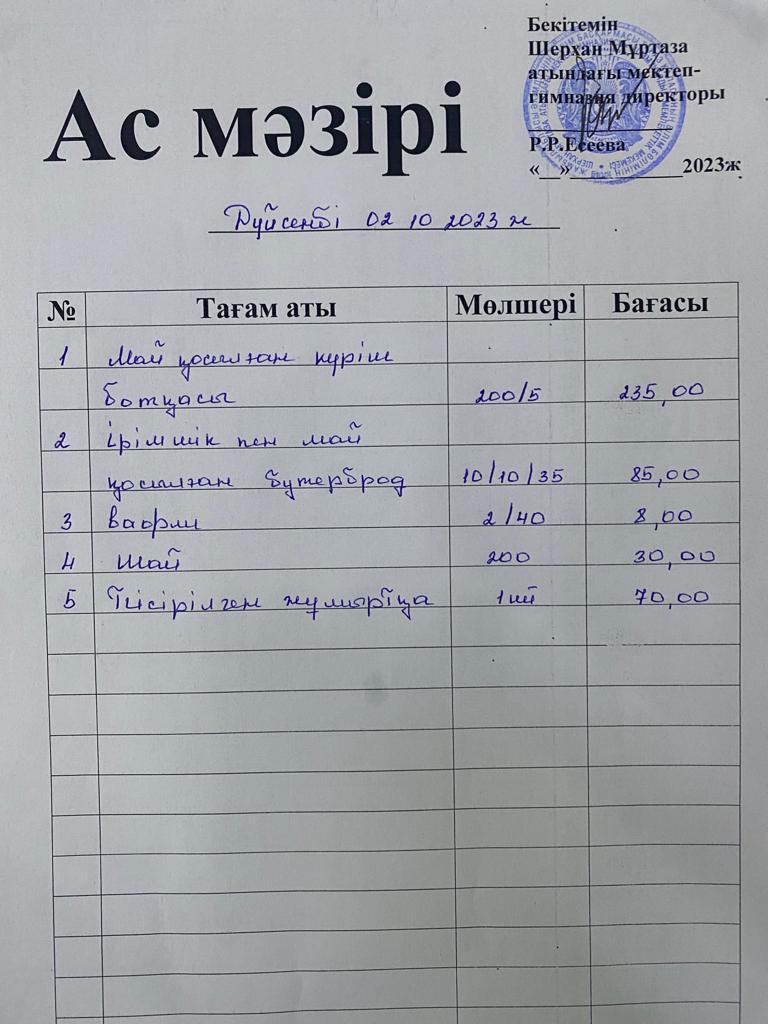 Бекітемін
Шерхан Мұртаза
атындағы мектеп-
гимназия директоры
Р.Р.Есеева
«__»__________2023ж.
Ас мәзірі
Дүйсенбі 02 10 2023 ж
№ Тағам аты Мөлшері Бағасы
1 Май қосылған күріш
ботқасы 200/5 235,00
2 Ірімшік пен май
қосылған бутерброд 10/10/35 85,00
3 Вафли 2/40 8,00
4 Шай 200 30,00
5 Пісірілген жұмыртқа 1шт 70,00